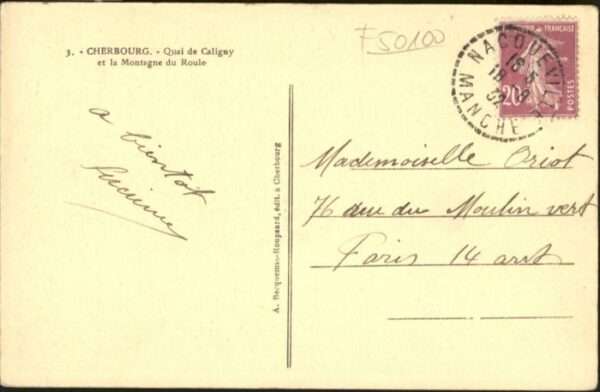 3. - CHERBOURG. - Quai de Caligny
et la Montagne du Roule
F50100
NACQUEVILLE
MANCHE
FRANÇAISE
20
POSTES
a bientôt
Lucienne
A. Becquems-Rouppard, édit. à Cherbourg
Mademoiselle Oriot
76 du Moulin vert
Paris 14 arrt